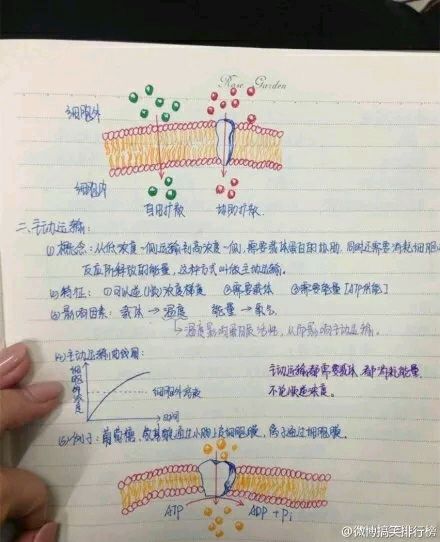 Rose Garden
细胞外
细胞内
自由扩散 协助扩散
二、主动运输:
(1) 概念:从低浓度一侧运输到高浓度一侧,需要载体蛋白的协助,同时还需要消耗细胞
反应所释放的能量,这种方式叫做主动运输。
(2) 特征: ①可以逆(低)浓度梯度 ②需要载体 ③需要能量[ATP供能]
(3) 影响因素: 载体 → 温度 能量 → 氧气
↳ 温度影响蛋白质活性,从而影响主动运输。
(4) 主动运输曲线图:
细胞内浓度
细胞外溶液
时间
主动运输都需要载体,都消耗能量
不一定逆浓度。
(5) 例子: 葡萄糖,氨基酸通过小肠上皮细胞膜,离子通过细胞膜。
ATP ADP + Pi
@微博搞笑排行榜